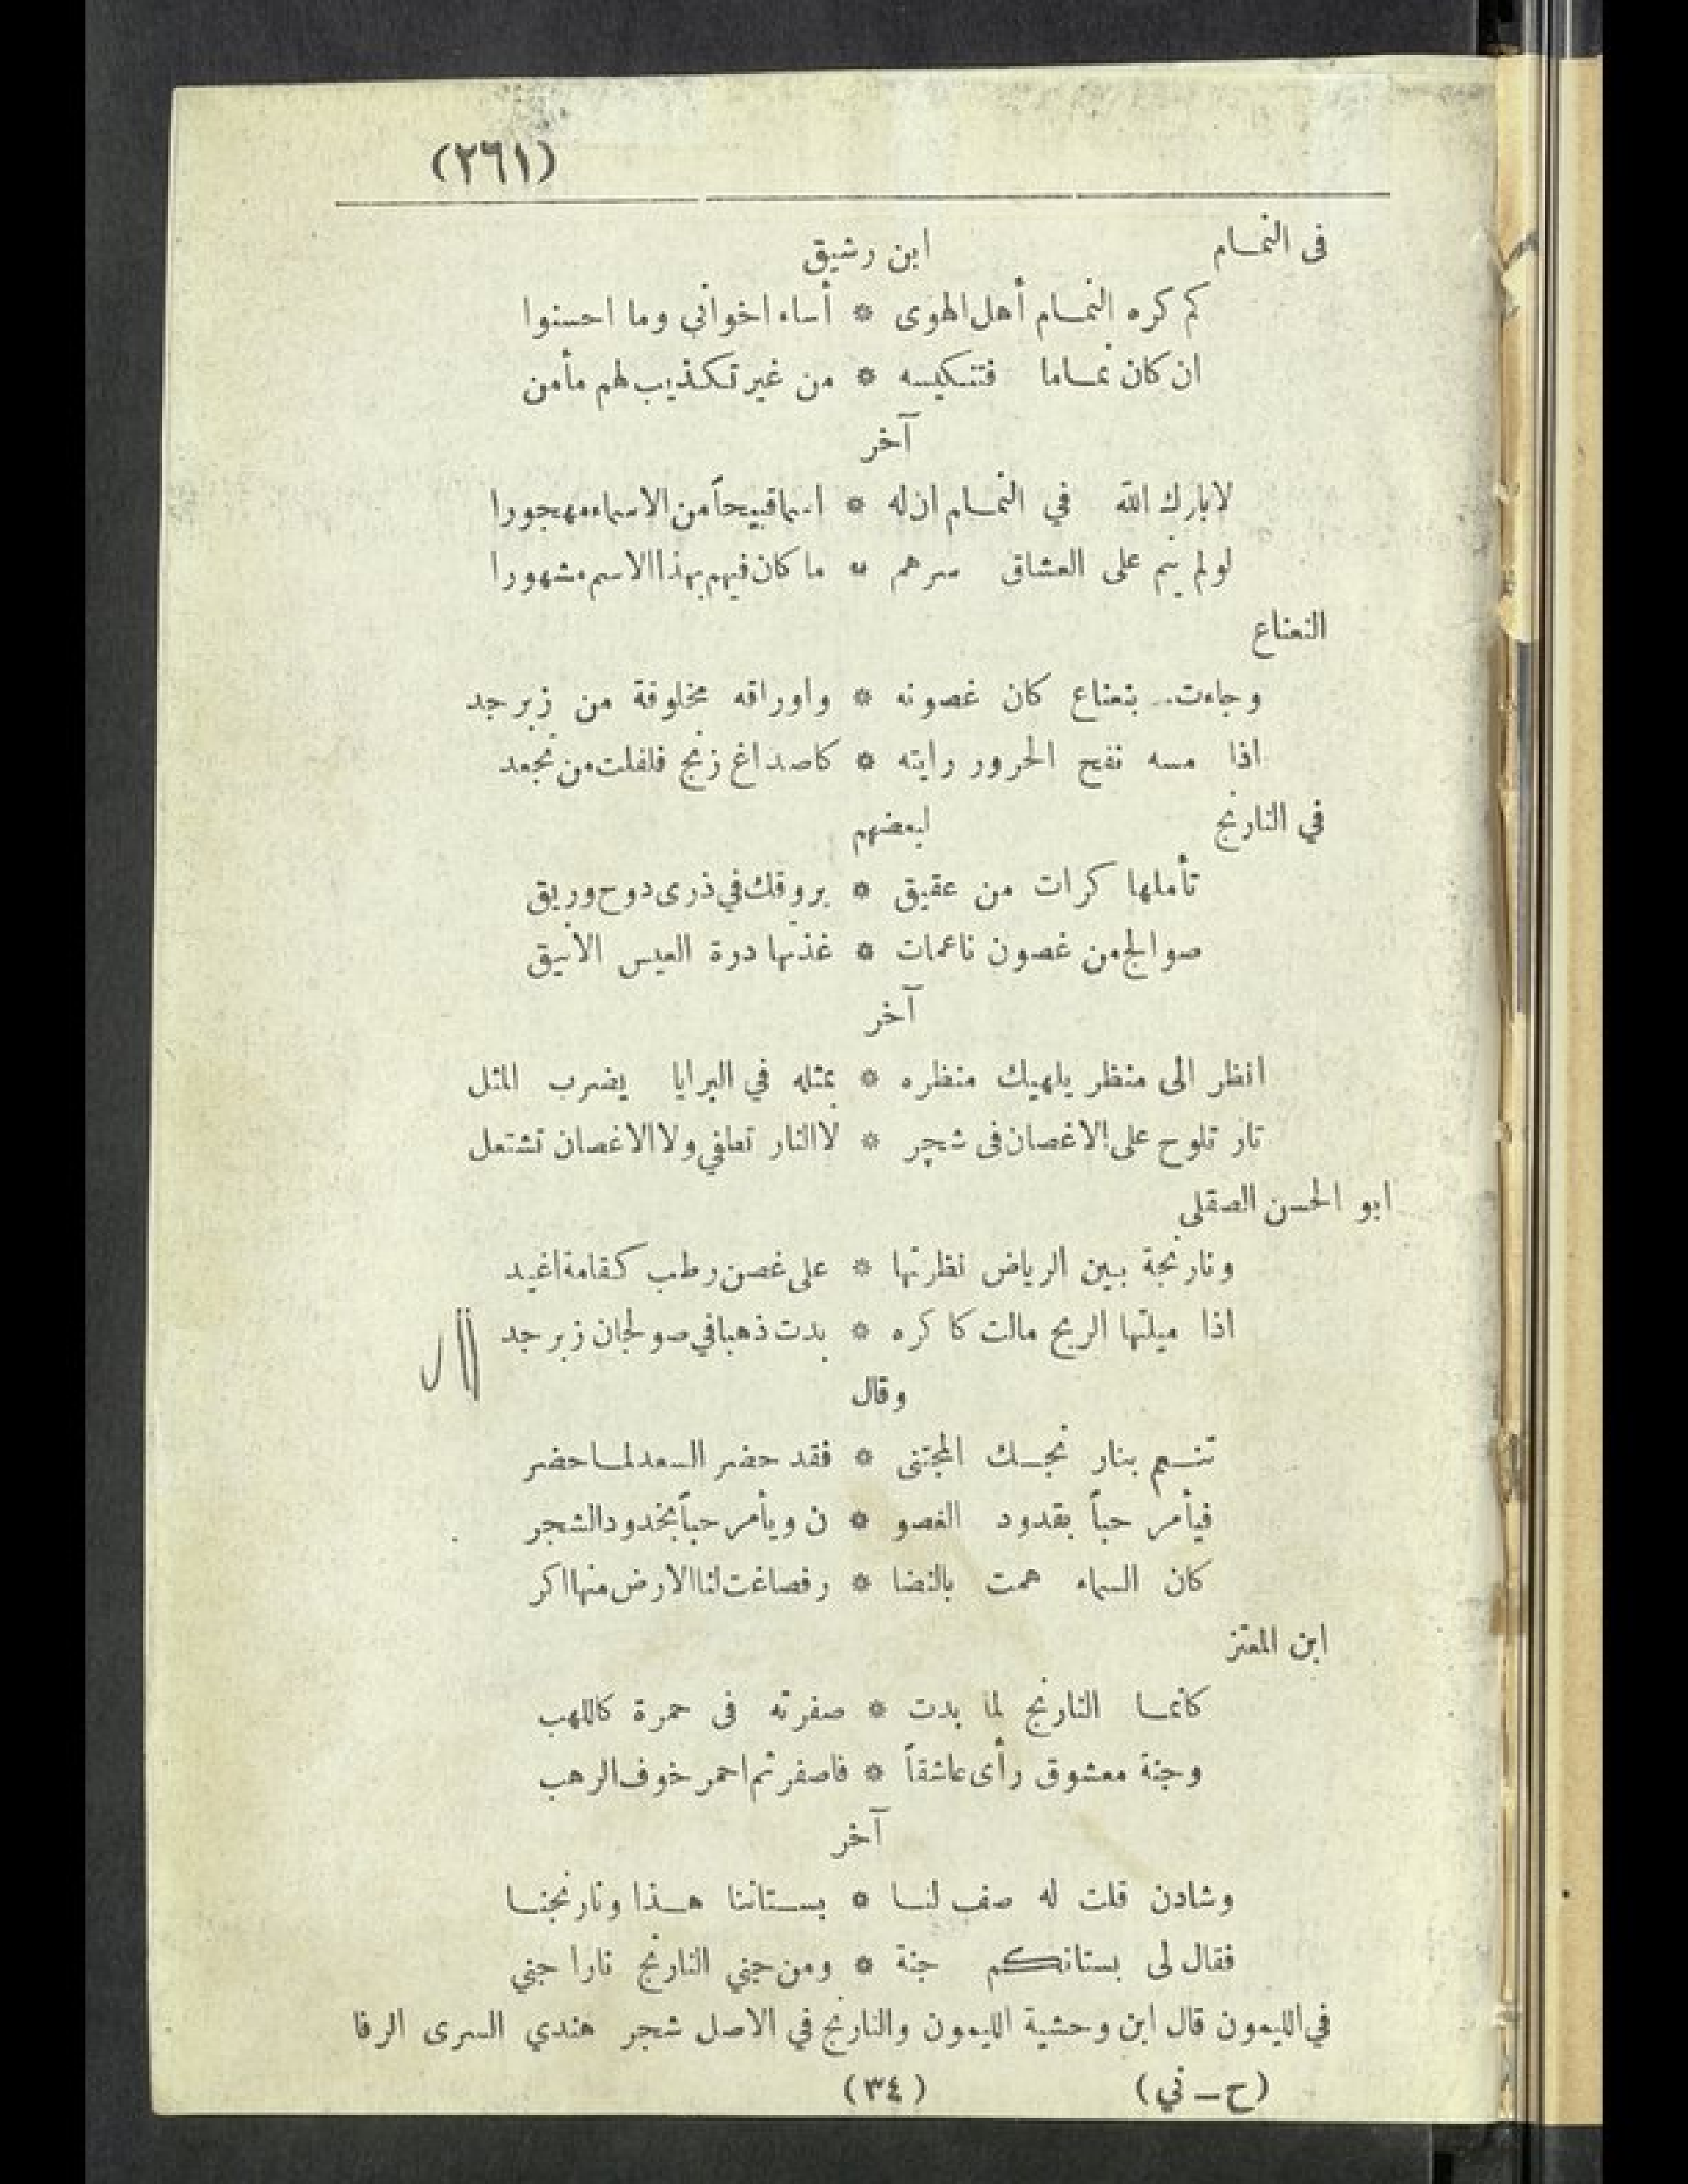 (٢٦١)
فى النمـام ابن رشيق
كم كره النمـام أهل الهوى * أساء اخوانى وما احسنوا
ان كان نمـاما فتنكيسه * من غير تكذيب لهم مأمن
آخر
لابارك الله في النمـام ان له * اسماقبيحاً من الاسماء مهجورا
لولم ينم على العشاق سرهم * ما كان فيهم بهذا الاسم مشهورا
النعناع
وجاءت بنعناع كان غصونه * واوراقه مخلوقة من زبرجد
اذا مسه نفح الحرور رايته * كاصداغ زنج فلفلت من تجعد
في النارنج لبعضهم
تأملها كرات من عقيق * يروقك في ذرى دوح وريق
صوالج من غصون ناعمات * غذتها درة العيس الانيق
آخر
انظر الى منظر يلهيك منظره * بمثله في البرايا يضرب المثل
نار تلوح على الاغصان فى شجر * لا النار تطفي ولا الاغصان تشتعل
ابو الحسن الصقلى
ونارنجة بين الرياض نظرتها * على غصن رطب كقامة اغيد
اذا ميلتها الريح مالت كاكره * بدت ذهبا في صولجان زبرجد
وقال
تنسم بنار نجـك المجتنى * فقد حضر السعد لمـا حضر
فيأمر حباً بقدود الغصو * ن ويأمر حباً بخدود الشجر
كان السماء همت بالنضا * ر فصاغت لنا الارض منها اكر
ابن المعتز
كانمـا النارنج لما بدت * صفرته فى حمرة كاللهب
وجنة معشوق رأى عاشقاً * فاصفر ثم احمر خوف الرهب
آخر
وشادن قلت له صف لنـا * بسـتاننا هـذا ونارنجنـا
فقال لى بستانكم جنة * ومن جني النارنج نارا جني
في الليمون قال ابن وحشية الليمون والنارنج في الاصل شجر هندي السرى الرفا
(ح ـ ني) (٣٤)